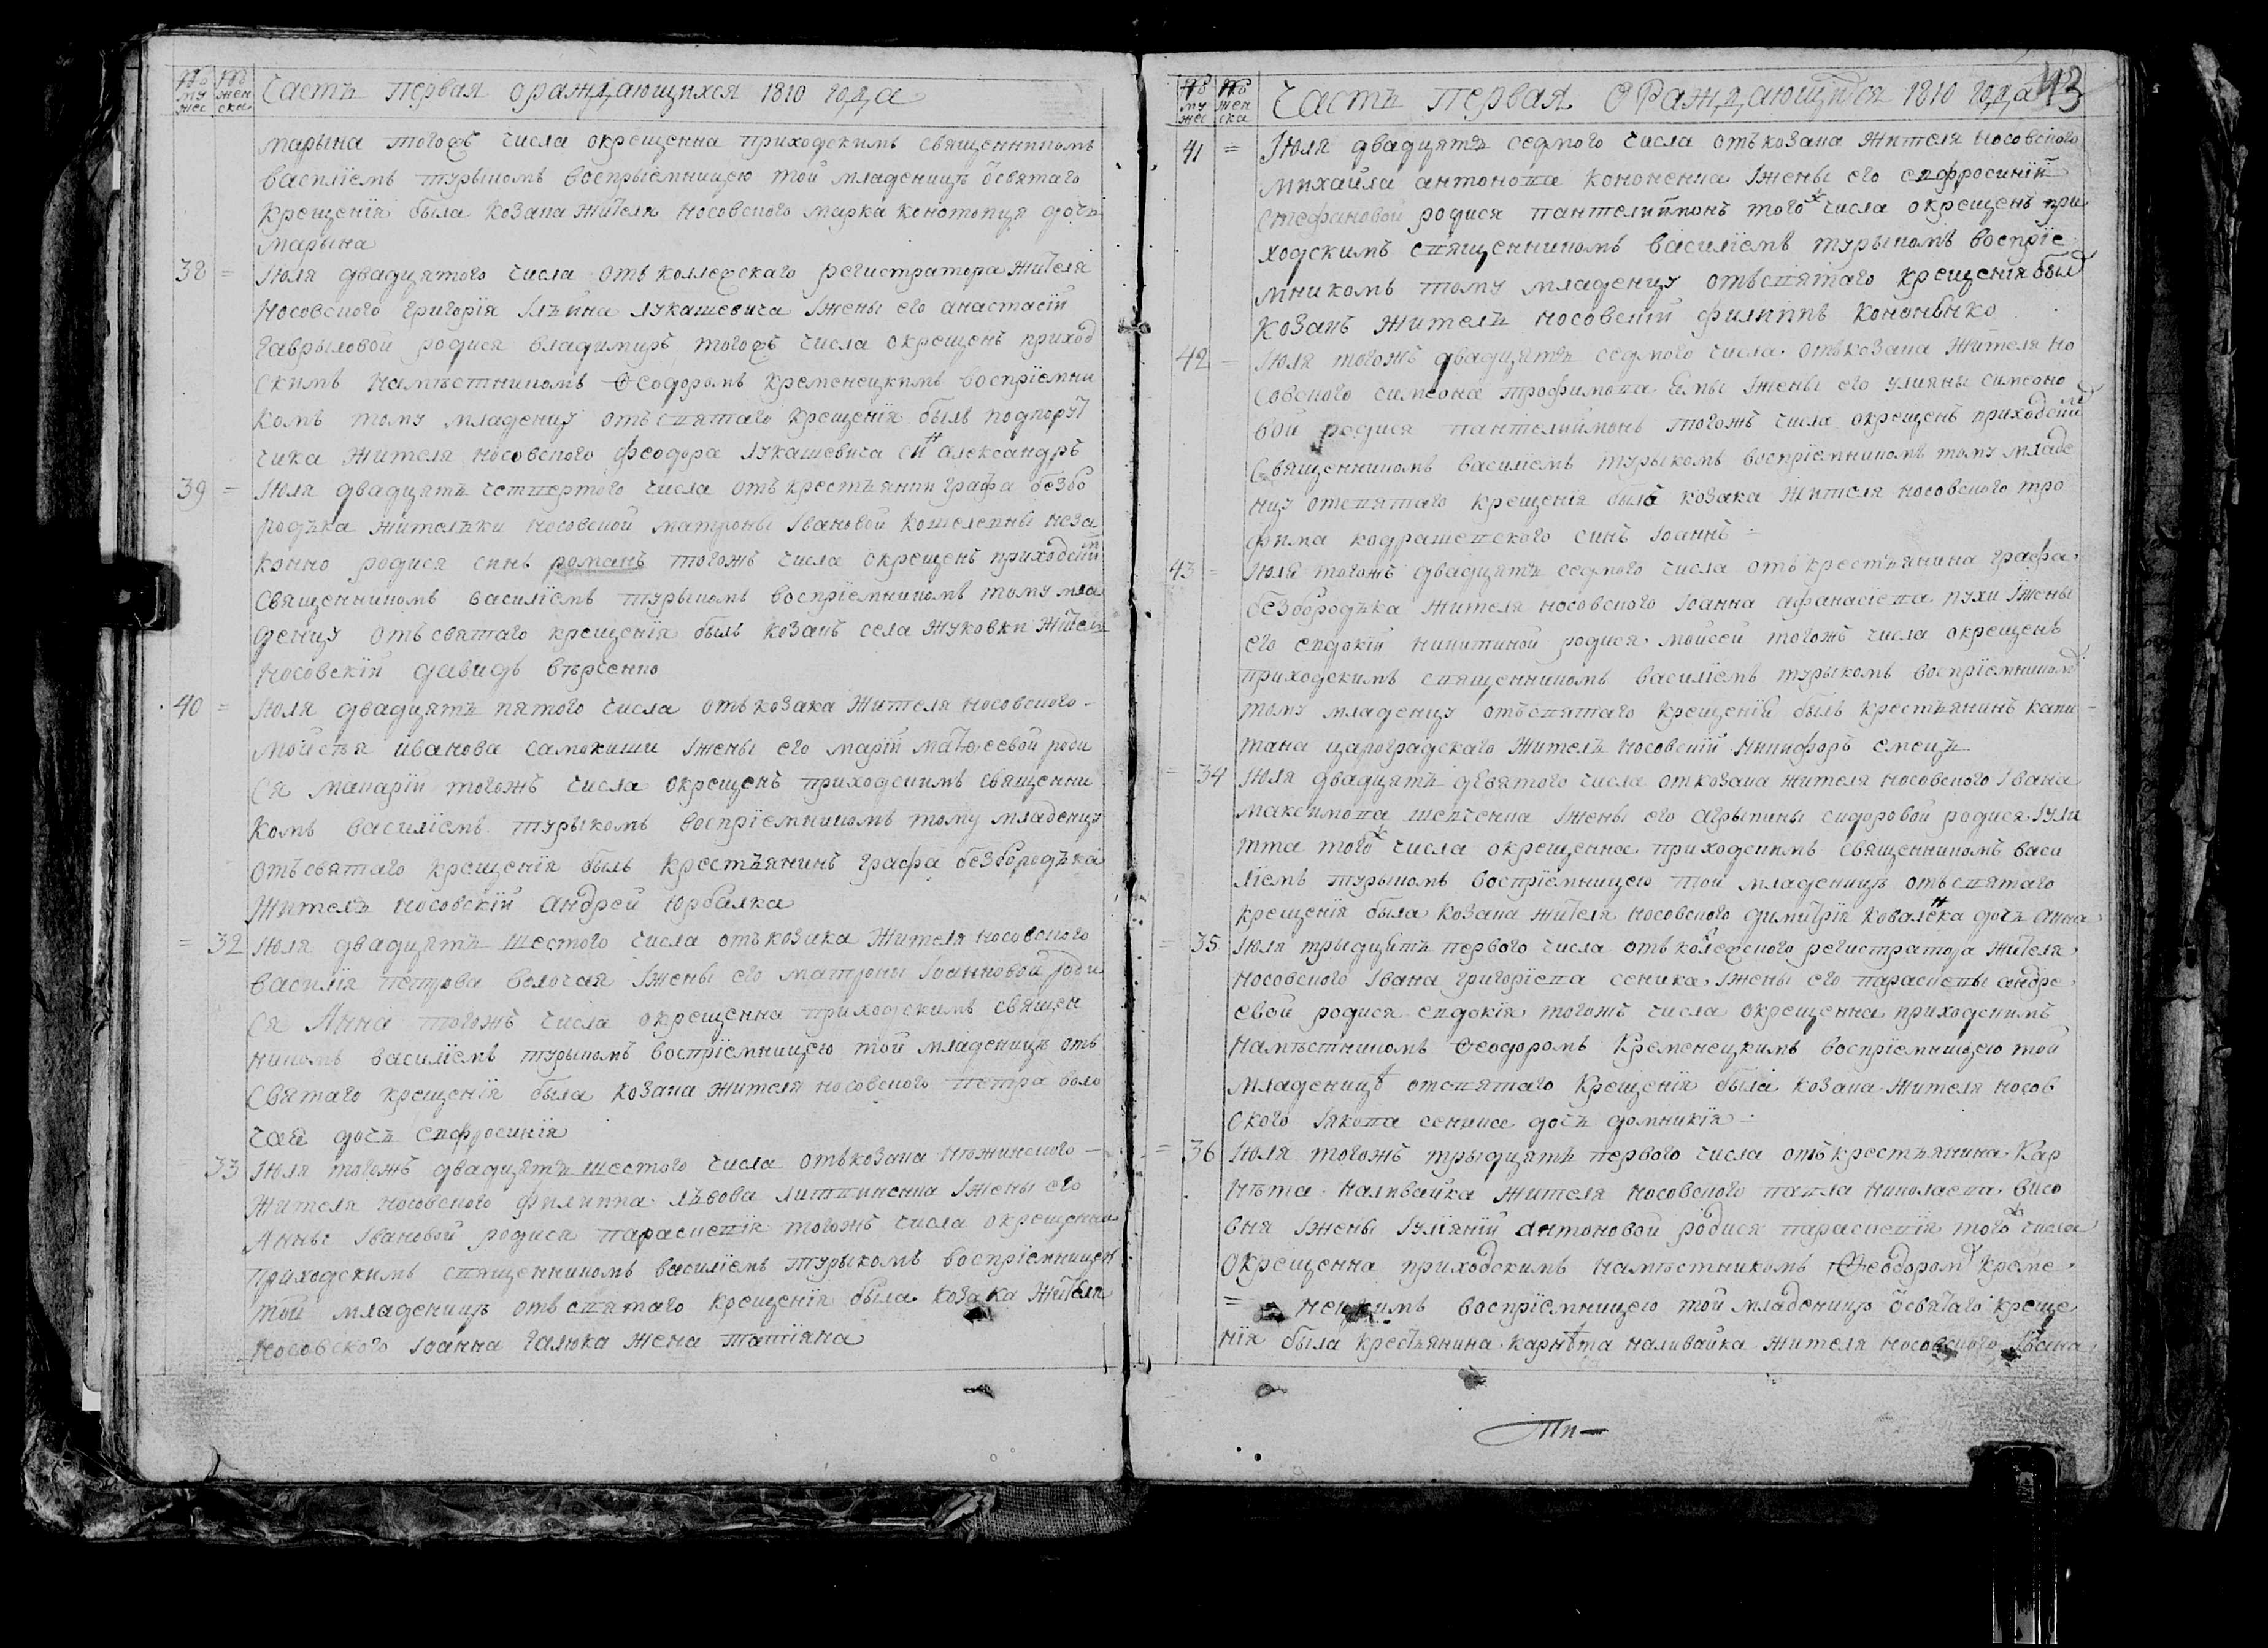 № му жес
№ жен ска
Часть первая ораждающихся 1810 года
марына тогожъ числа окрещенна приходскимъ священникомъ
василіемъ турыкомъ воспріемницею той младеницъ ѿсвятаго
крещенія была козака жителя носовского марка конотопця дочь
марына
38 = Іюля двадцятого числа отъ коллежскаго регистратора жителя
носовского григорія Ілъина лукашевича Іжены его анастасіи
гаврыловой родися владимиръ тогожъ числа окрещенъ приход
скимъ намѣстникомъ Ѳеодоромъ кременецкимъ воспріемни
комъ тому младенцу отъ святаго крещенія былъ подпоруч
чика жителя носовского феодора лукашевича сынъ александръ
39 = Іюля двадцять четвертого числа отъ крестъянки графа безбо
родъка жителъки носовской матроны Івановой кошелевны неза
конно родися синъ романъ тогожъ числа окрещенъ приходским
священникомъ василіемъ турыкомъ воспріемникомъ тому мла
денцу отъ святаго крещенія былъ козакъ села жуковки жителъ
носовскій давидъ
40 = Іюля двадцять пятого числа отъ козака жителя носовского
мойсея иванова самокиши Іжены его маріи матѳеевой роди
ся макарій тогожъ числа окрещенъ приходскимъ священни
комъ василіемъ турыкомъ воспріемникомъ тому младенцу
отъ святаго крещенія былъ крестъянинъ графа безбородъка
жителъ носовскій андрей юрбалка
= 32 Іюля двадцять шестого числа отъ козака жителя носовского
василія петрова волочая Іжены его матроны Іоанновой роди
ся Анна тогожъ числа окрещенна приходскимъ священ
никомъ василіемъ турыкомъ воспріемницею той младеницъ отъ
святаго крещенія была козака жителя носовского петра воло
чая дочъ евфросинія
33 Іюля тогожъ двадцять шестого числа отъ козака нѣжинского
жителя носовского филиппа лъвова литвиненка Іжены его
Анны Івановой родися параскевія тогожъ числа окрещенна
приходскимъ священникомъ василіемъ турыкомъ воспріемницею
той младеницъ отъ святаго крещенія была козака жителя
носовского Іоанна галюка жена татіяна
№ му жес
№ жен ска
Часть первая ораждающихся 1810 года 43
41 = Іюля двадцять седмого числа отъ козака жителя носовского
михайла антонова кононенка Іжены его евфросиніи
стефановой родися пантелиймонъ тогож числа окрещенъ при
ходскимъ священникомъ василіемъ турыкомъ воспріе
мникомъ тому младенцу отъ святаго крещенія был
козакъ жителъ носовскій филиппъ кононѣнко
42 = Іюля тогожъ двадцять седмого числа отъ козака жителя но
совского симеона трофимова Емы Іжены его улияны симеоно
вой родися пантелиймонъ тогожъ числа окрещенъ приходским
священникомъ василіемъ турыкомъ воспріемникомъ тому младе
нцу отсвятаго крещенія билъ козака жителя носовского тро
фима кодрашевского синъ Іоаннъ
43 = Іюля тогожъ двадцять седмого числа отъ крестъянина графа
безбородъка жителя носовского Іоанна афанасіева пухи Іжены
его евдокіи никитиной родися мойсей тогожъ числа окрещенъ
приходскимъ священникомъ василіемъ турыкомъ воспріемником
тому младенцу отъ святаго крещенія былъ крестъянинъ капи
тана цароградскаго жителъ носовскій никифоръ емецъ
= 34 Іюля двадцять девятого числа от козака жителя носовского Івана
максимова шевченка Іжены его агрыпины сидоровой родися Іули
тта тогож числа окрещенна приходскимъ священникомъ васи
ліемъ турыкомъ воспріемницею той младеницъ отъ святаго
крещенія была козака жителя носовского димитрія коваленка дочъ анна
= 35 Іюля трыдцять первого числа отъ колежского регистратора жителя
носовского Івана григоріева сеника Іжены его параскевы андре
евой родися евдокія тогожъ числа окрещенна приходскимъ
намѣстникомъ Ѳеодоромъ Кременецкимъ воспріемницею той
младеницѣ отсвятаго крещенія была козака жителя носов
ского Іякова сеника дочъ домникія
= 36 Іюля тогожъ трыдцять первого числа отъ крестъянина Кар
нѣта наливайка жителя носовского павла николаева висо
вня Іжены Іуліяніи антоновой родися параскевія тогож числа
окрещенна приходскимъ намѣстникомъ Ѳеодором креме
нецкимъ воспріемницею той младеницъ ѿсвятаго креще
нія была крестъянина карнѣта наливайка жителя носовского Івана